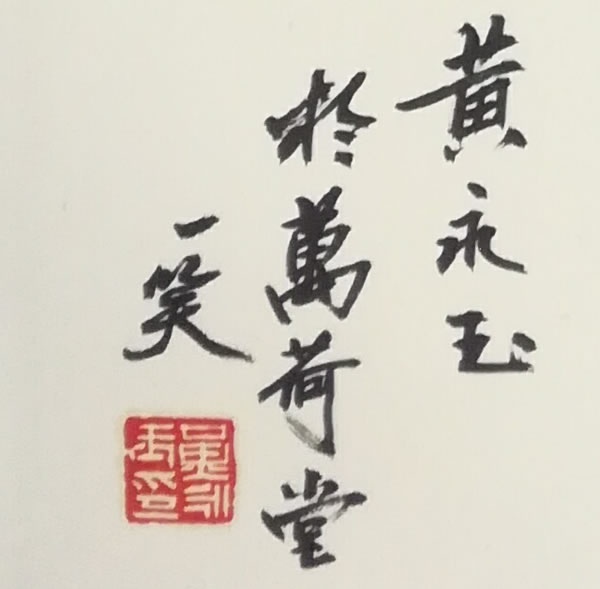 黄永玉
於萬荷堂
一笑